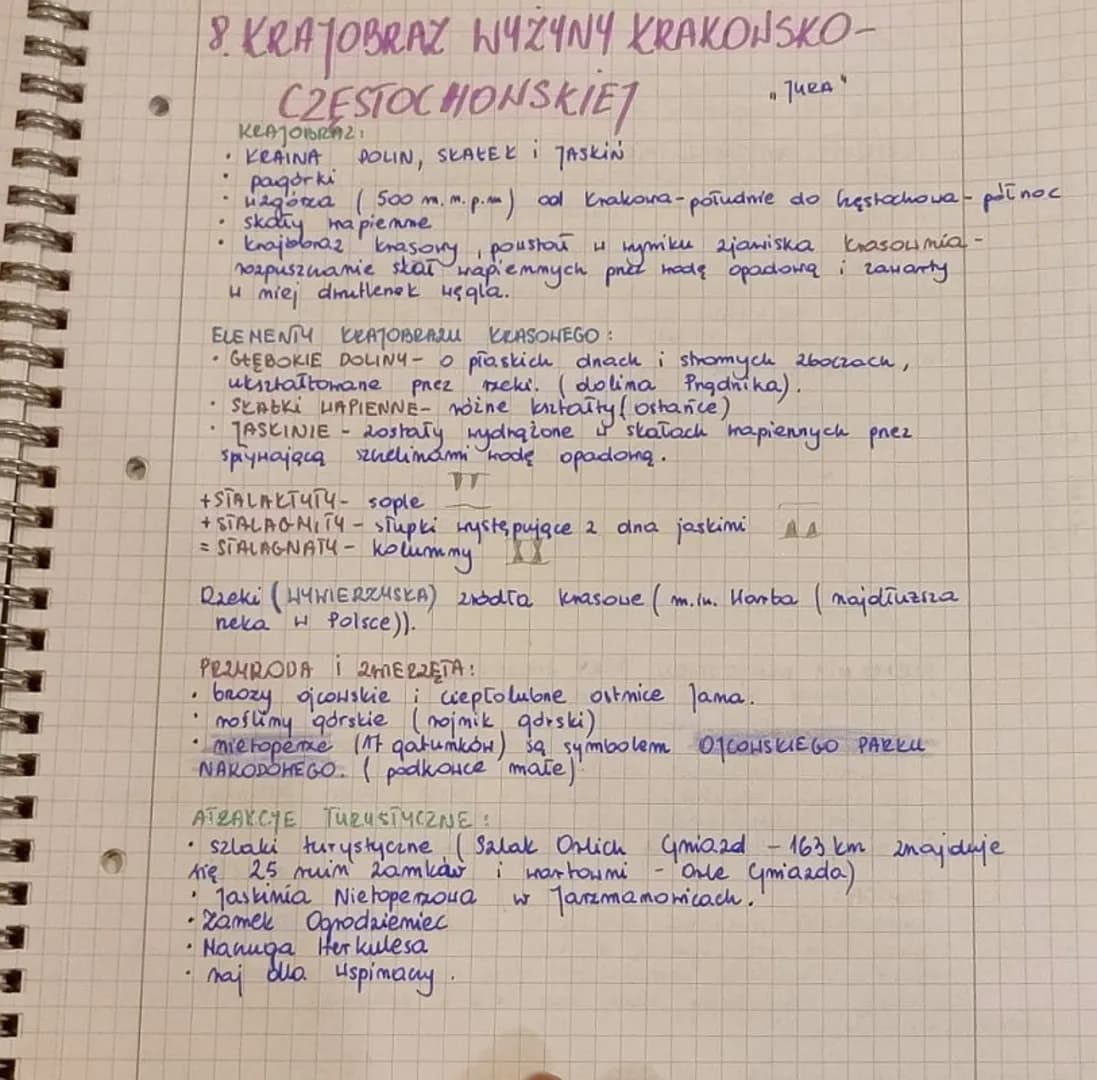 8. KRAJOBRAZ WYŻYNY KRAKOWSKO-
CZĘSTOCHOWSKIEJ „JURA"
KRAJOBRAZ:
• KRAINA DOLIN, SKAŁEK i JASKIŃ
• pagórki
• wzgórza (500 m.n.p.m) od Krakowa - południe do Częstochowa - północ
• skały wapienne
• krajobraz krasowy, powstał w wyniku zjawiska krasownia -
rozpuszczanie skał wapiennych przez wodę opadową i zawarty
w niej dwutlenek węgla.
ELEMENTY KRAJOBRAZU KRASOWEGO:
• GŁĘBOKIE DOLINY - o płaskich dnach i stromych zboczach,
ukształtowane przez rzeki. (dolina Prądnika).
• SKAŁKI WAPIENNE - różne kształty (ostańce)
• JASKINIE - zostały wydrążone w skałach wapiennych przez
spływającą szczelinami wodę opadową.
+ STALAKTYTY - sople
+ STALAGMITY - słupki występujące z dna jaskini
= STALAGNATY - kolumny
Rzeki (WYWIERZYSKA) źródła krasowe (m.in. Warta (najdłuższa
rzeka w Polsce)).
PRZYRODA i ZWIERZĘTA:
• brzozy ojcowskie i ciepłolubne ostnice Jana.
• rośliny górskie (rojnik górski)
• nietoperze (17 gatunków) są symbolem OJCOWSKIEGO PARKU
NARODOWEGO. (podkowce małe)
ATRAKCJE TURYSTYCZNE:
• szlaki turystyczne (Szlak Orlich Gniazd - 163 km znajduje
się 25 ruin zamków i wartowni - Orle Gniazda)
• Jaskinia Nietoperzowa w Jarzmanowicach.
• Zamek Ogrodzieniec
• Maczuga Herkulesa
• raj dla wspinaczy.